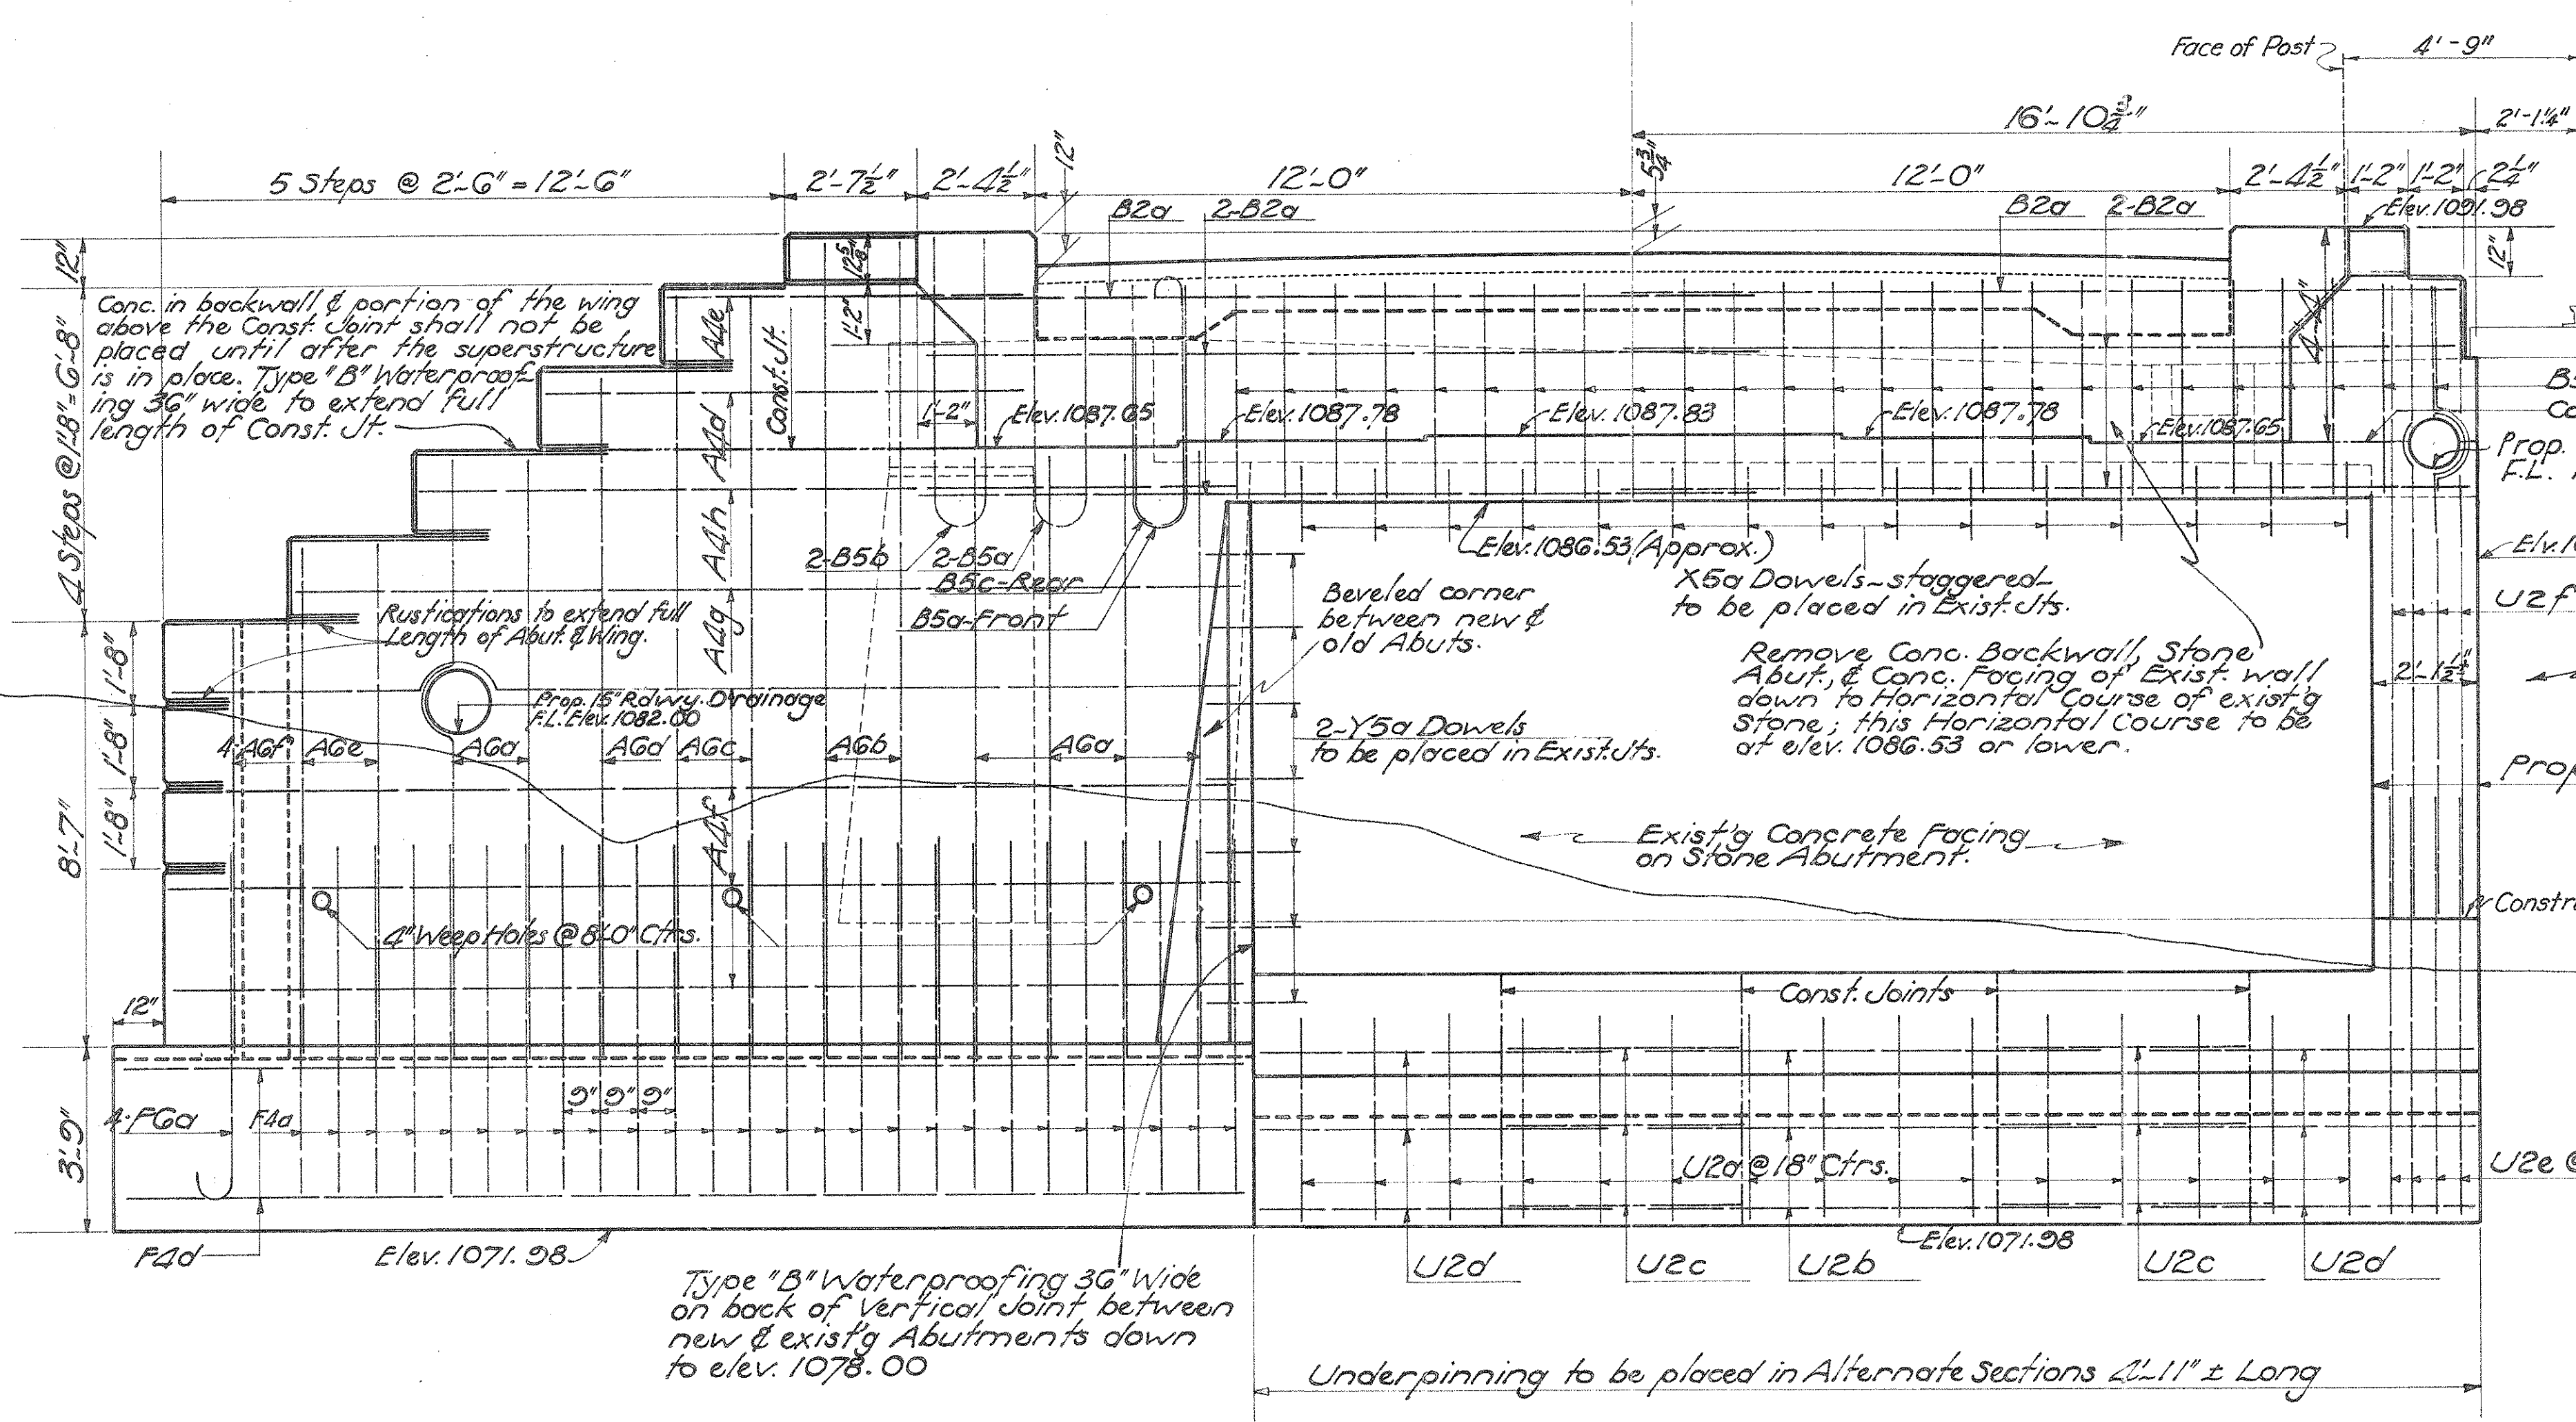 Face of Post
4'-9"
16'-10 3/4"
2'-1 1/4"
5 Steps @ 2'-6" = 12'-6"
2'-7 1/2"
2'-4 1/2"
12"
12'-0"
5 3/4"
12'-0"
2'-4 1/2"
1'-2"
1'-2"
2 1/4"
B2a
2-B2a
B2a
2-B2a
Elev. 1091.98
12"
12 5/8"
12"
Conc. in backwall & portion of the wing
above the Const. Joint shall not be
placed until after the superstructure
is in place. Type "B" Waterproof-
ing 36" wide to extend full
length of Const. Jt.
4 Steps @ 1'-8" = 6'-8"
A4e
Const. Jt.
1'-2"
4'-4"
A4d
1'-2"
Elev. 1087.65
Elev. 1087.78
Elev. 1087.83
Elev. 1087.78
Elev. 1087.65
Prop.
F.L.
A4h
2-B5b
2-B5a
B5c-Rear
B5a-Front
Elev. 1086.53 (Approx.)
X5a Dowels-staggered-
to be placed in Exist. Jts.
Beveled corner
between new &
old Abuts.
U2f
Rustications to extend full
Length of Abut. & Wing.
A4g
1'-8"
Remove Conc. Backwall, Stone
Abut., & Conc. Facing of Exist. wall
down to Horizontal Course of exist'g
Stone; this Horizontal Course to be
at elev. 1086.53 or lower.
2'-1 1/2"
Prop. 15" Rdwy. Drainage
F.L. Elev. 1082.00
2-Y5a Dowels
to be placed in Exist. Jts.
1'-8"
4-A6f
A6e
A6a
A6d
A6c
A6b
A6a
Prop
8'-7"
1'-8"
A4f
Exist'g Concrete Facing
on Stone Abutment.
4" Weep Holes @ 8'-0" Ctrs.
Constr
12"
Const. Joints
3'-9"
9"
9"
9"
4-F6a
F4a
U2a @ 18" Ctrs.
U2e @
F4d
Elev. 1071.98
Elev. 1071.98
U2d
U2c
U2b
U2c
U2d
Type "B" Waterproofing 36" Wide
on back of Vertical Joint between
new & exist'g Abutments down
to elev. 1078.00
Underpinning to be placed in Alternate Sections 4'-11" ± Long